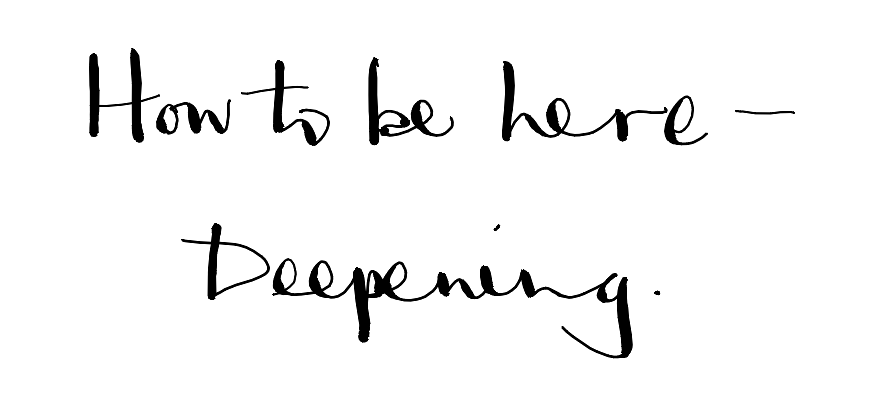 How to be here –
Deepening.